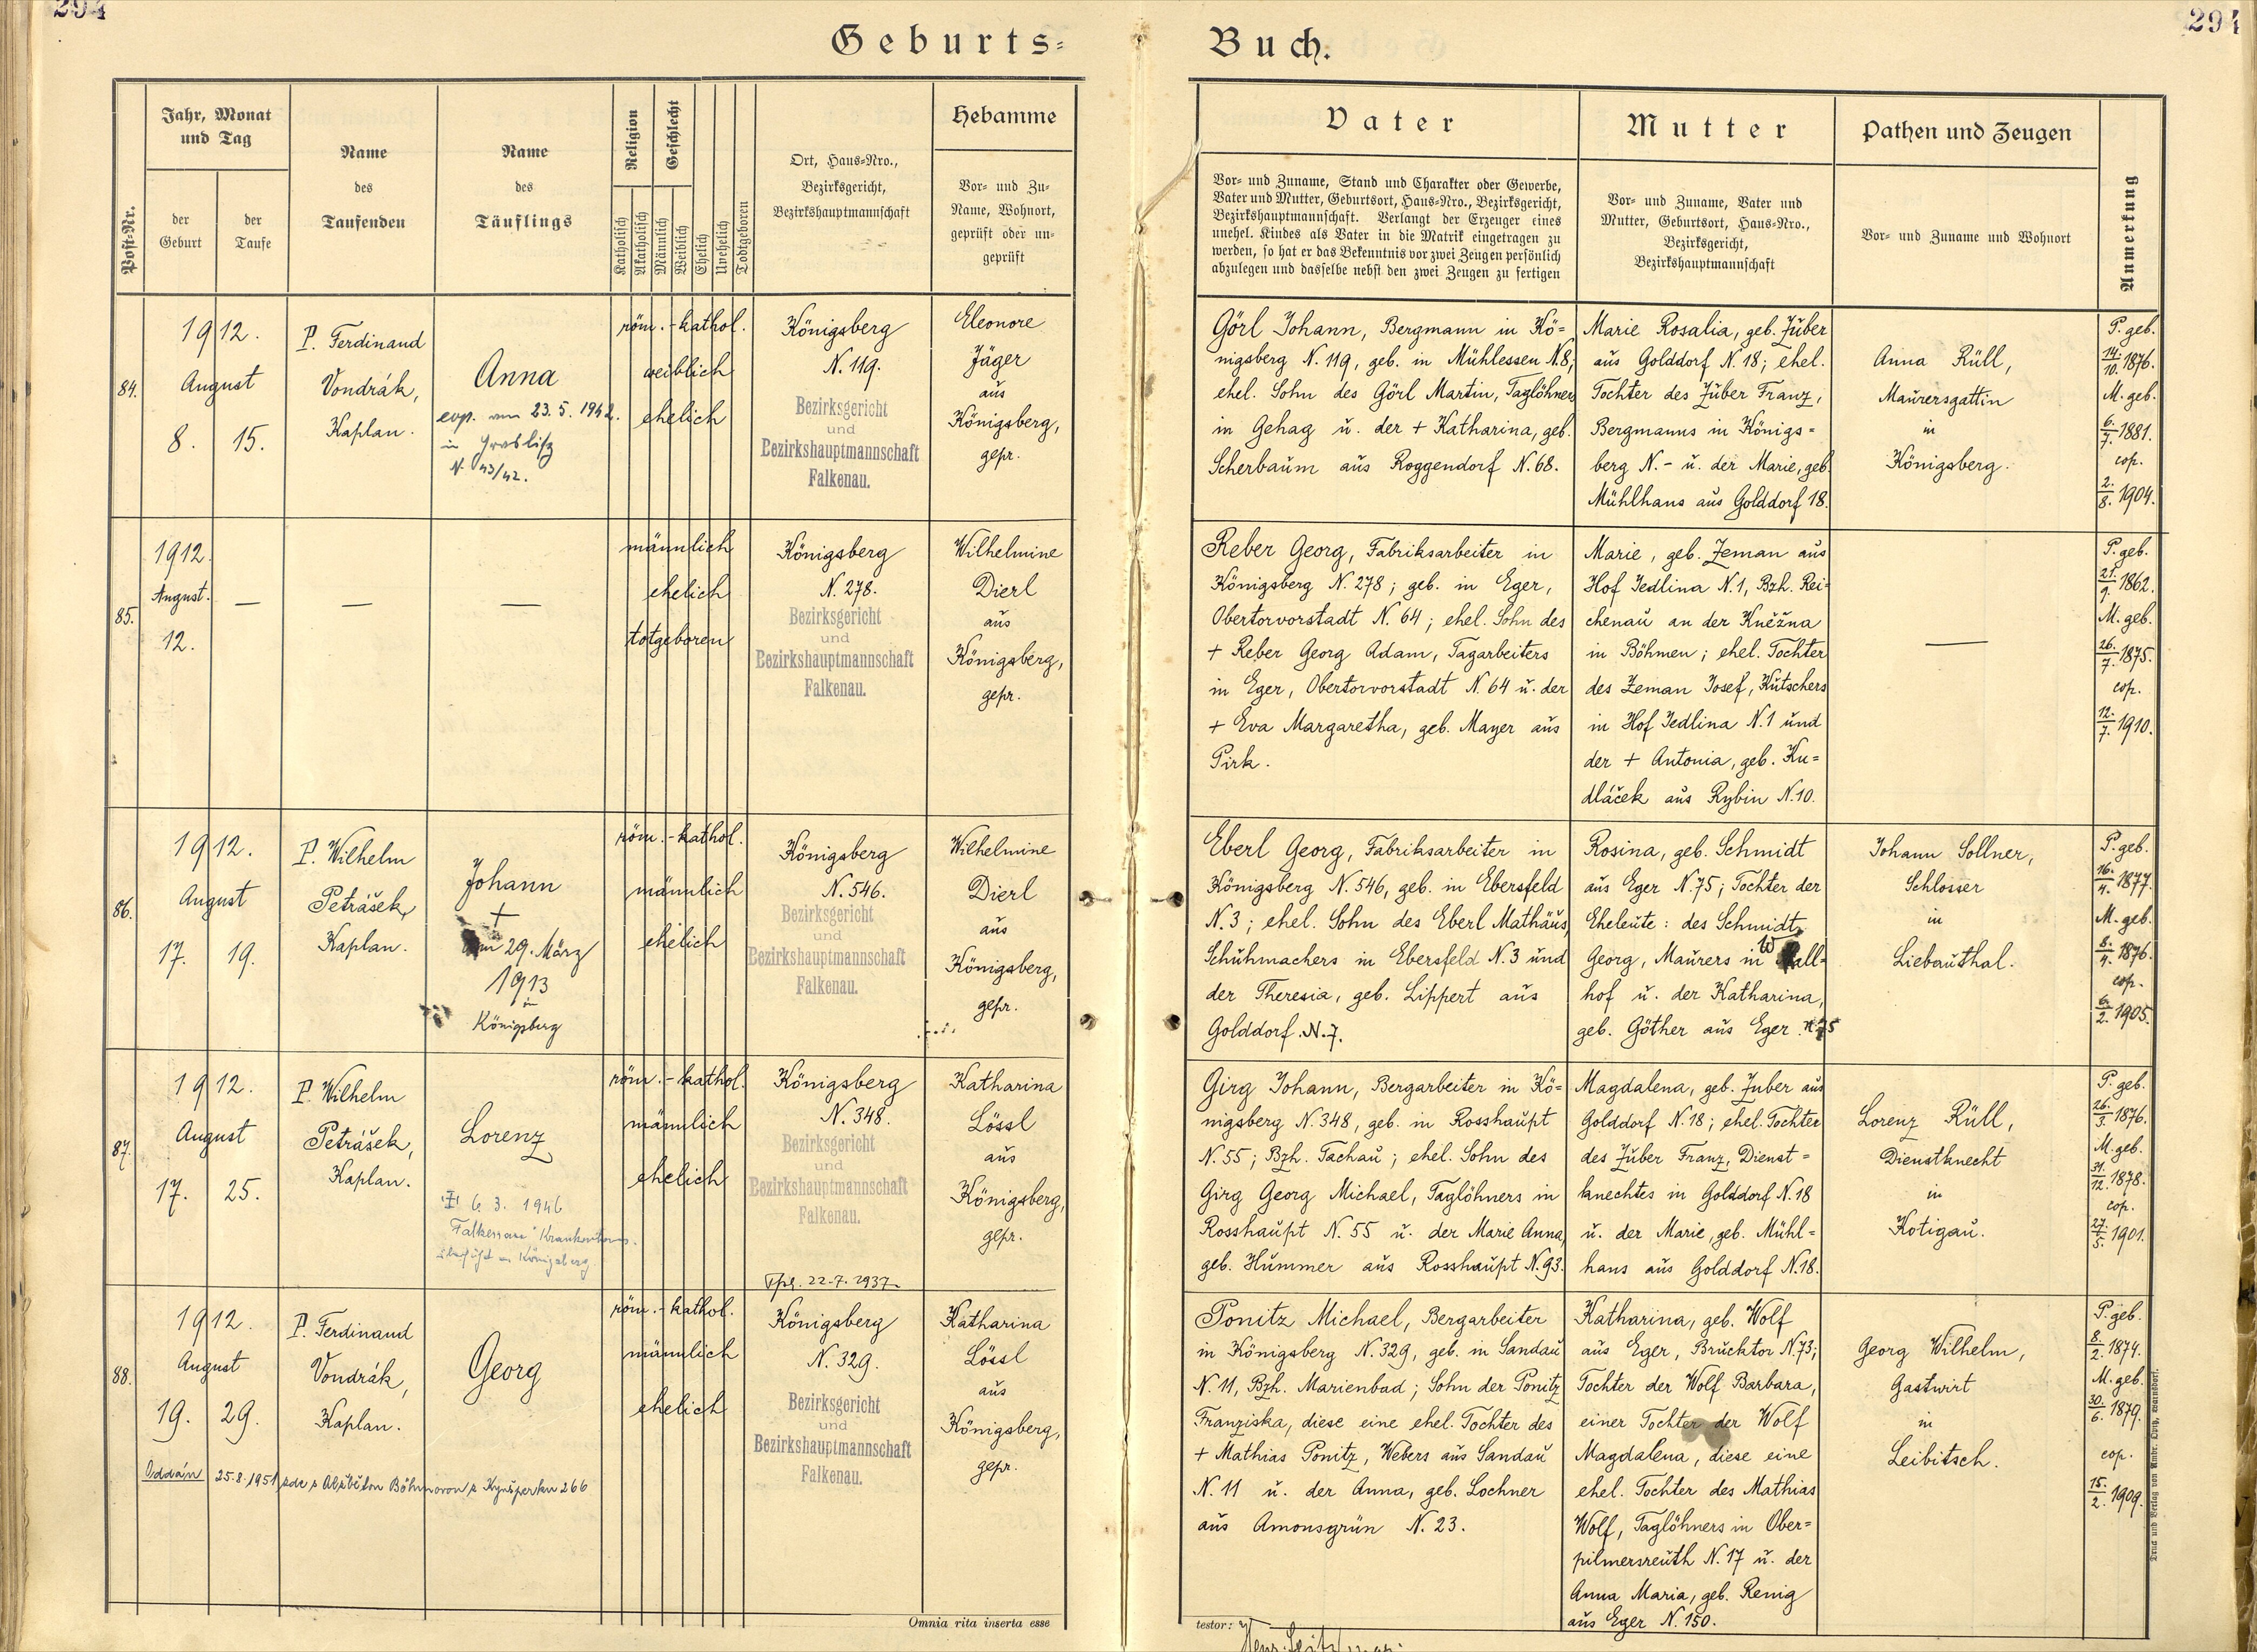 294
Geburts-
Buch.
294
Post-Nr.
Jahr, Monat
und Tag
der
Geburt
der
Taufe
Name
des
Taufenden
Name
des
Täuflings
Religion
Geschlecht
Katholisch
Akatholisch
Männlich
Weiblich
Ehelich
Unehelich
Todtgeboren
Ort, Haus-Nro.,
Bezirksgericht,
Bezirkshauptmannschaft
Hebamme
Vor- und Zu-
Name, Wohnort,
geprüft oder un-
geprüft
Vater
Vor- und Zuname, Stand und Charakter oder Gewerbe,
Vater und Mutter, Geburtsort, Haus-Nro., Bezirksgericht,
Bezirkshauptmannschaft. Verlangt der Erzeuger eines
unehel. Kindes als Vater in die Matrik eingetragen zu
werden, so hat er das Bekenntnis vor zwei Zeugen persönlich
abzulegen und dasselbe nebst den zwei Zeugen zu fertigen
Mutter
Vor- und Zuname, Vater und
Mutter, Geburtsort, Haus-Nro.,
Bezirksgericht,
Bezirkshauptmannschaft
Pathen und Zeugen
Vor- und Zuname und Wohnort
Anmerkung
84.
1912.
August
8. 15.
P. Ferdinand
Vondrák,
Kaplan.
Anna
cop. am 23.5.1942.
in Graslitz
N. 43/42.
röm.-kathol.
weiblich
ehelich
Königsberg
N. 119.
Bezirksgericht
und
Bezirkshauptmannschaft
Falkenau.
Eleonore
Jäger
aus
Königsberg,
gepr.
Görl Johann, Bergmann in Kö=
nigsberg N. 119, geb. in Mühlessen N.8;
ehel. Sohn des Görl Martin, Taglöhners
in Gehag u. der + Katharina, geb.
Scherbaum aus Roggendorf N. 68.
Marie Rosalia, geb. Zuber
aus Golddorf N. 18; ehel.
Tochter des Zuber Franz,
Bergmanns in Königs=
berg N.- u. der Marie, geb.
Mühlhans aus Golddorf 18.
Anna Rüll,
Maurersgattin
in
Königsberg.
P. geb.
14./10. 1876.
M. geb.
6./7. 1881.
cop.
2./8. 1904.
85.
1912.
August.
12.
—
—
—
männlich
ehelich
totgeboren
Königsberg
N. 278.
Bezirksgericht
und
Bezirkshauptmannschaft
Falkenau.
Wilhelmine
Dierl
aus
Königsberg,
gepr.
Reber Georg, Fabriksarbeiter in
Königsberg N. 278; geb. in Eger,
Obertorvorstadt N. 64; ehel. Sohn des
+ Reber Georg Adam, Tagarbeiters
in Eger, Obertorvorstadt N. 64 u. der
+ Eva Margaretha, geb. Mayer aus
Pirk.
Marie, geb. Zeman aus
Hof Jedlina N.1, Bzh. Rei=
chenau an der Kněžna
in Böhmen; ehel. Tochter
des Zeman Josef, Kutschers
in Hof Jedlina N.1 und
der + Antonia, geb. Ku=
dláček aus Rybin N.10.
—
P. geb.
21./9. 1862.
M. geb.
26./7. 1875.
cop.
12./7. 1910.
86.
1912.
August
17. 19.
P. Wilhelm
Petrášek,
Kaplan.
Johann
+
am 29. März
1913
in
Königsberg
röm.-kathol.
männlich
ehelich
Königsberg
N. 546.
Bezirksgericht
und
Bezirkshauptmannschaft
Falkenau.
Wilhelmine
Dierl
aus
Königsberg,
gepr.
Eberl Georg, Fabriksarbeiter in
Königsberg N. 546, geb. in Ebersfeld
N. 3; ehel. Sohn des Eberl Mathäus,
Schuhmachers in Ebersfeld N. 3 und
der Theresia, geb. Lippert aus
Golddorf N. 7.
Rosina, geb. Schmidt
aus Eger N. 75; Tochter der
Eheleute: des Schmidt
Georg, Maurers in Wall=
hof u. der Katharina,
geb. Göther aus Eger N 75
Johann Sollner,
Schlosser
in
Liebauthal.
P. geb.
16./4. 1877.
M. geb.
8./4. 1876.
cop.
6./2. 1905.
87.
1912.
August
17. 25.
P. Wilhelm
Petrášek,
Kaplan.
Lorenz
6. 3. 1946
Falkenau Krankenhaus.
überführt n. Königsberg
röm.-kathol.
männlich
ehelich
Königsberg
N. 348.
Bezirksgericht
und
Bezirkshauptmannschaft
Falkenau.
Katharina
Lössl
aus
Königsberg,
gepr.
Girg Johann, Bergarbeiter in Kö=
nigsberg N. 348, geb. in Rosshaupt
N. 55; Bzh. Tachau; ehel. Sohn des
Girg Georg Michael, Taglöhners in
Rosshaupt N. 55 u. der Marie Anna,
geb. Hummer aus Rosshaupt N. 93.
Magdalena, geb. Zuber aus
Golddorf N. 18; ehel. Tochter
des Zuber Franz, Dienst=
knechtes in Golddorf N. 18
u. der Marie, geb. Mühl=
hans aus Golddorf N. 18.
Lorenz Rüll,
Dienstknecht
in
Kotigau.
P. geb.
26./3. 1876.
M. geb.
31./12. 1878.
cop.
27./5. 1901.
88.
1912.
August
19. 29.
Oddán 25.8.1951 zde s Alžbětou Böhmovou z Kynšperku 266
P. Ferdinand
Vondrák,
Kaplan.
Georg
röm.-kathol.
männlich
ehelich
22.7.1937.
Königsberg
N. 329.
Bezirksgericht
und
Bezirkshauptmannschaft
Falkenau.
Katharina
Lössl
aus
Königsberg,
gepr.
Ponitz Michael, Bergarbeiter
in Königsberg N. 329, geb. in Sandau
N. 11, Bzh. Marienbad; Sohn der Ponitz
Franziska, diese eine ehel. Tochter des
+ Mathias Ponitz, Webers aus Sandau
N. 11 u. der Anna, geb. Lochner
aus Amonsgrün N. 23.
Katharina, geb. Wolf
aus Eger, Brucktor N. 73;
Tochter der Wolf Barbara,
einer Tochter der Wolf
Magdalena, diese eine
ehel. Tochter des Mathias
Wolf, Taglöhners in Ober=
pilmersreuth N. 17 u. der
Anna Maria, geb. Renig
aus Eger N. 150.
Georg Wilhelm,
Gastwirt
in
Leibitsch.
P. geb.
8./2. 1874.
M. geb.
30./6. 1879.
cop.
15./2. 1909.
Omnia rita inserta esse
testor:
Druck und Verlag von Ambr. Opitz, Warnsdorf.